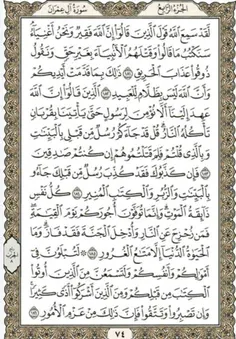 الجزء الرابع
سورة آل عمران
لَّقَدْ سَمِعَ اللَّهُ قَوْلَ الَّذِينَ قَالُوا إِنَّ اللَّهَ فَقِيرٌ وَنَحْنُ أَغْنِيَاءُ
سَنَكْتُبُ مَا قَالُوا وَقَتْلَهُمُ الْأَنبِيَاءَ بِغَيْرِ حَقٍّ وَنَقُولُ
ذُوقُوا عَذَابَ الْحَرِيقِ ١٨١ ذَٰلِكَ بِمَا قَدَّمَتْ أَيْدِيكُمْ
وَأَنَّ اللَّهَ لَيْسَ بِظَلَّامٍ لِّلْعَبِيدِ ١٨٢ الَّذِينَ قَالُوا إِنَّ اللَّهَ
عَهِدَ إِلَيْنَا أَلَّا نُؤْمِنَ لِرَسُولٍ حَتَّىٰ يَأْتِيَنَا بِقُرْبَانٍ
تَأْكُلُهُ النَّارُ قُلْ قَدْ جَاءَكُمْ رُسُلٌ مِّن قَبْلِي بِالْبَيِّنَاتِ
وَبِالَّذِي قُلْتُمْ فَلِمَ قَتَلْتُمُوهُمْ إِن كُنتُمْ صَادِقِينَ
١٨٣ فَإِن كَذَّبُوكَ فَقَدْ كُذِّبَ رُسُلٌ مِّن قَبْلِكَ جَاءُو
بِالْبَيِّنَاتِ وَالزُّبُرِ وَالْكِتَابِ الْمُنِيرِ ١٨٤ كُلُّ نَفْسٍ
ذَائِقَةُ الْمَوْتِ وَإِنَّمَا تُوَفَّوْنَ أُجُورَكُمْ يَوْمَ الْقِيَامَةِ
فَمَن زُحْزِحَ عَنِ النَّارِ وَأُدْخِلَ الْجَنَّةَ فَقَدْ فَازَ وَمَا
الْحَيَاةُ الدُّنْيَا إِلَّا مَتَاعُ الْغُرُورِ ١٨٥ لَتُبْلَوُنَّ فِي
أَمْوَالِكُمْ وَأَنفُسِكُمْ وَلَتَسْمَعُنَّ مِنَ الَّذِينَ أُوتُوا
الْكِتَابَ مِن قَبْلِكُمْ وَمِنَ الَّذِينَ أَشْرَكُوا أَذًى كَثِيرًا
وَإِن تَصْبِرُوا وَتَتَّقُوا فَإِنَّ ذَٰلِكَ مِنْ عَزْمِ الْأُمُورِ ١٨٦
٧٤